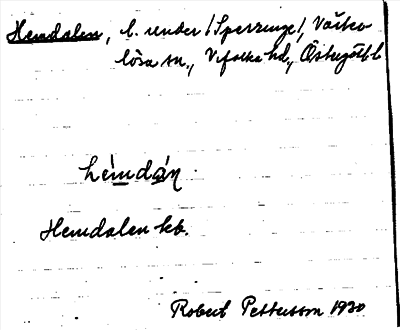 Hemdalen, l. under Sperringe, Västra
lösa sn., Vifolka hd., Östergötl. l.
hèmdán
Hemdalen kb.
Robert Pettersson 1930